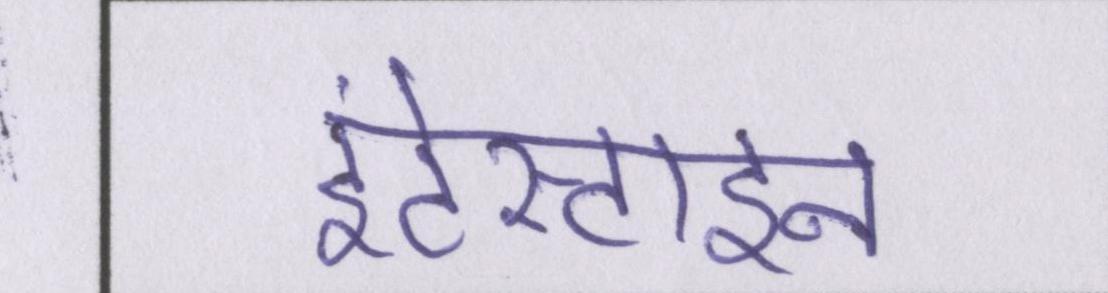 इंटेस्टाइन